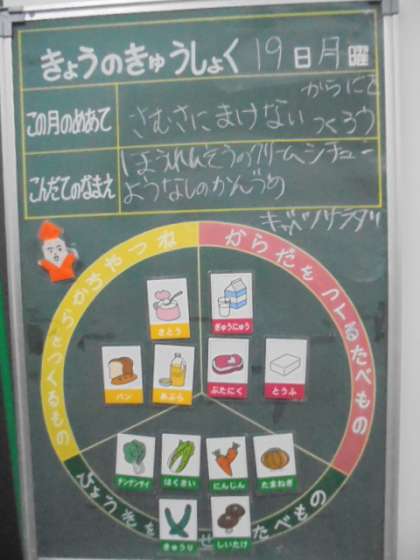 きょうのきゅうしょく 19日月曜
この月のめあて さむさにまけないからだをつくろう
こんだてのなまえ ほうれんそうのクリームシチュー
ようなしのかんづめ
キャベツサラダ
からだをつくるたべもの
さとう
ぎゅうにゅう
パン
あぶら
ぶたにく
とうふ
チンゲンサイ
はくさい
にんじん
たまねぎ
きゅうり
しいたけ